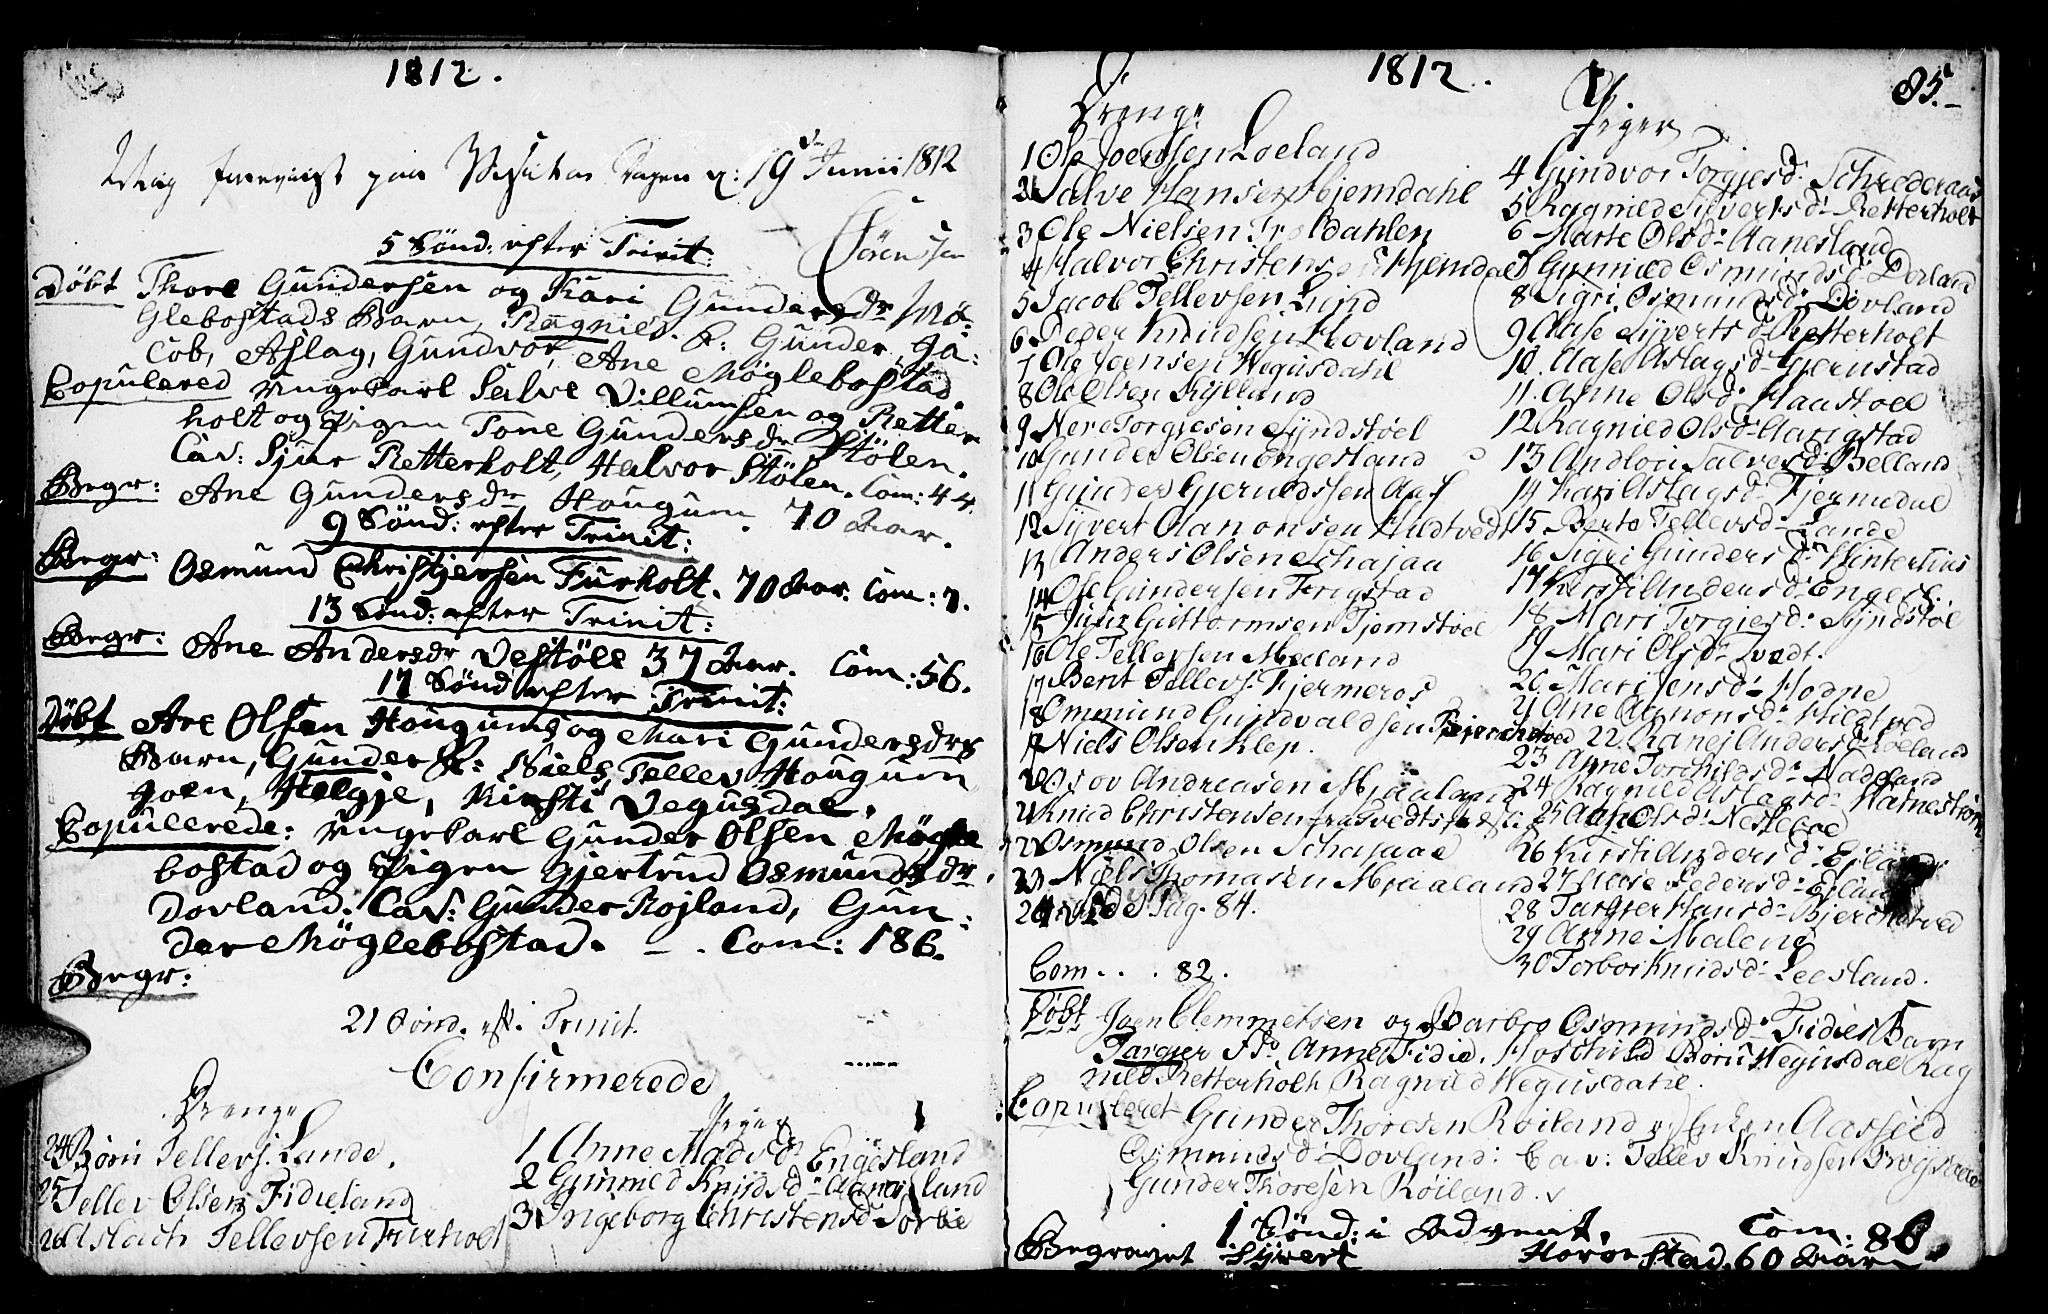 1812.
foreviist paa Visitas Dagen d: 19 Junii 1812
Sørenssen
5 Sønd: efter Trinit:
Døbt Thore Gundersen og Kari Gundersdr Mø:
glebostads Barn, Ragnied. F: Gunder, Ja:
cob, Aslag, Gundvor, Ane Møglebostad.
Copulered Ungekarl Salve Villumsen Retter
holt og Pigen Tone Gundersdr Stølen.
Cav: Sjur Retterholt, Halvor Stølen. Com: 44.
Begr: Ane Gundersdr Hougum. 70 Aar.
9 Sønd: efter Trinit:
Begr: Osmund Christjersen Furholt. 70 Aar. Com: 7.
13 Sønd: efter Trinit:
Begr: Ane Andersdr Vestöll 37 Aar. Com: 56.
17 Sønd efter Trinit:
Døbt Are Olsen Hougums og Mari Gundersdrs
Barn, Gunder F: Niels, Tellev Hougum
Joen, Helgje, Kirsti Vegusdal.
Copulerede: Ungekarl Gunder Olsen Møgle
bostad og Pigen Gjertrud Osmundsdr
Dovland: Cav: Gunder Røjland, Gun:
der Møglebostad. - . Com: 186.
Begr:
21 Sønd. eft. Trinit.
Confirmerede
Drenge
24 Børni Tellevs. Lande.
25 Tellev Olsen Fidieland
26 Aslach Tellevsen Furholt
Piger
1 Anne Madsd: Engesland
2 Gunnied Knudsd: Aanesland
3 Ingeborg Christensd: Sorbie
1812.
85.
Drenge
1 Ole Joensen Loeland
2 Salve Hansen Hjemdahl
3 Ole Nielsen Troldahlen
4 Halvor Christensen Hjemdal
5 Jacob Tellevsen Lund
6 Peder Knudsen Hovland
7 Ole Joensen Wegusdahl
8 Ole Olsen Rylland
9 Nere Torgiesen Syndstøel
10 Gunder Olsen Engesland
11 Gunder Gjerulssen Aas
12 Syvert Aanonsen Hildtvedt
13 Anders Olsen Schajaa
14 Ole Gundersen Frigstad
15 Guttormsen Tjomstoel
16 Ole Tellefsen Mjaland
17 Berit Tellevs. Fjermeros
18 Ommund Gundvaldsen Bjerchetved
19 Niels Olsen Klep.
20 Andreasen Mjaaland
21 Knud Christensen
22 Osmund Olsen Schajaae
23 Niels Thomasen Mjaaland
24 Vide Pag. 84.
Com . . . 82.
Piger
4 Gundvor Torgjesd: Schrederaas
5 Ragnild Syvertsd: Retterholt
6 Marte Olsd: Aanesland
7 Gunnild Osmundsd: Dovland
8 Sigri Osmundsd: Dovland
9 Aase Syvertsd: Retterholt
10. Aase Aslagsd: Gjernstad
11. Anne Olsd: Haastoel
12 Ragnied Olsd: Aarigstad
13 Andlou Salvesd: Belland
14 Kari Aslagsd: Fjermedal
15 Berte Tellevsd: Lande
16 Sigri Gundersd:
17 Kirsti Andersd: Engesl..
18 Mari Torgiersd: Syndstøl
19 Mari Olsd: Tvedt.
20 Mari Jensd: Hodne
21 Ane Aanonsd: Hildtved
22. Ranej Andersd: Loeland
23 Anne Torchildsd: Nadeland
24 Ragnild Aslagsd: Hatnestrøm
25 Aase Olsd: Neseboe
26 Kirsti Andersd: Ejland
27 Aase Pedersd: Ejland
28 Targjer Hansd: Bjerchetved
29 Anne Malene
30 Torbor Knudsd: Leesland.
Døbt Joen Clemmetsen og Barbro Osmundsd: Fidies Barn
Targier Fd: Anne Fidie. Hoschild Børu Wegusdal Rag
nild Retterholt Ragnild Wegusdahl.
Copuleret Gunder Thoresen Røiland og Enken Aasseld
Osmundsd: Dovland: Cav: Tellev Knudsen Frøgstad
Gunder Thoresen Røiland.
1 Sønd: i Advent. Com: 86.
Begravet Syvert Horverstad. 60 Aar